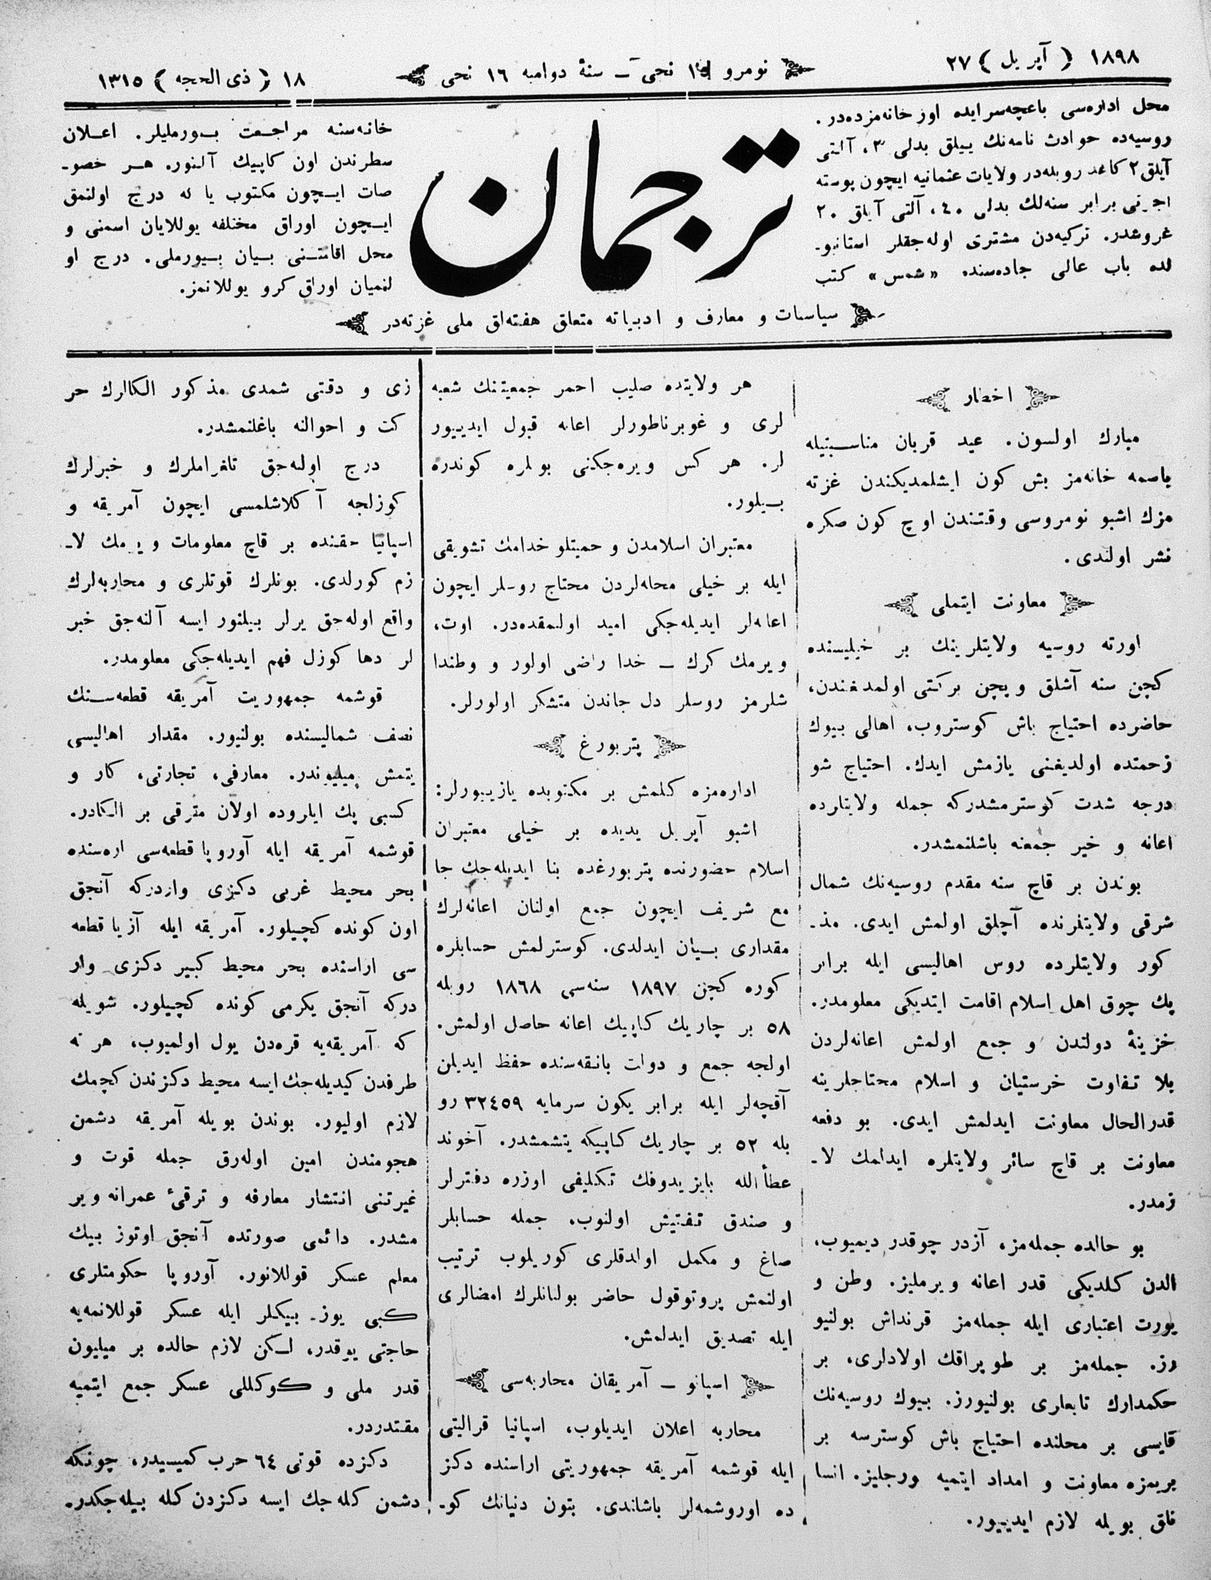 ١٨٩٨ ( آپریل ) ٢٧
نومرو ١٥ نجی ـ سنۀ دوامیه ١٦ نجی
١٨ ( ذی الحجه ) ١٣١٥
محل اداره‌سی باغچه‌سرایده اوز خانه‌مزده‌در.
روسیه‌ده حوادث نامه‌نك ییللق بدلی ٣، آلتی
آیلق ٢ کاغد روبله‌در ولایات عثمانیه ایچون پوسته
اجرتی برابر سنه‌لك بدلی ٤٠، آلتی آیلق ٢٠
غروشدر. ترکیه‌دن مشتری اوله‌جقلر استانبو-
لده باب عالی جاده‌سنده «شمس» کتب
ترجمان
خانه‌سنه مراجعت بیورملیلر. اعلان
سطرندن اون کاپیك آلنور. هر خصو-
صات ایچون مکتوب یا له درج اولنمق
ایچون اوراق مختلفه یوللایان اسمنی و
محل اقامتنی بیان بیورملی. درج او
لنمیان اوراق کرو یوللانمز.
سیاسات و معارف و ادبیاته متعلق هفته‌لق ملی غزته‌در
اخطار
مبارك اولسون. عید قربان مناسبتیله
باصمه خانه‌مز بش کون ایشلمدیکندن غزته
مزك اشبو نومروسی وقتندن اوچ کون صکره
نشر اولندی.
معاونت ایتملی
اورته روسیه ولایتلرینك بر خیلیسنده
کچن سنه آشلق و پچن برکتی اولمدیغندن،
حاضرده احتیاج باش کوستروب، اهالی بیوك
زحمتده اولدیغنی یازمش ایدك. احتیاج شو
درجه شدت کوسترمشدرکه جمله ولایتلرده
اعانه و خیر جمعنه باشلنمشدر.
بوندن بر قاچ سنه مقدم روسیه‌نك شمال
شرقی ولایتلرنده آچلق اولمش ایدی. مذ-
کور ولایتلرده روس اهالیسی ایله برابر
پك چوق اهل اسلام اقامت ایتدیکی معلومدر.
خزینۀ دولتدن و جمع اولمش اعانه‌لردن
بلا تفاوت خرستیان و اسلام محتاجلرینه
قدرالحال معاونت ایدلمش ایدی. بو دفعه
معاونت بر قاچ سائر ولایتلره ایدلمك لا-
زمدر.
بو حالده جمله‌مز، آزدر چوقدر دیمیوب،
الدن کلدیکی قدر اعانه ویرملیز. وطن و
یورت اعتباری ایله جمله‌مز قرنداش بولنیو
رز. جمله‌مز بر طوپراقك اولادلری، بر
حکمدارك تابعلری بولنیورز. بیوك روسیه‌نك
قایسی بر محلنده احتیاج باش کوسترسه بر
بریمزه معاونت و امداد ایتمیه بورجلیز. انسا
نلق بویله لازم ایدییور.
هر ولایتده صلیب احمر جمعیتنك شعبه
لری و غوبرناطورلر اعانه قبول ایدییور
لر. هر کس ویره‌جکنی بونلره کوندره
بیلور.
معتبران اسلامدن و حمیتلو خدامك تشویقی
ایله بر خیلی محله‌لردن محتاج روسلر ایچون
اعانه‌لر ایدیله‌جکی امید اولنمقده‌در. اوت،
ویرمك کرك ـ خدا راضی اولور و وطندا
شلرمز روسلر دل جاندن متشکر اولورلر.
پتربورغ
اداره‌مزه کلمش بر مکتوبده یازیبورلر:
اشبو آپریل یدیده بر خیلی معتبران
اسلام حضورنده پتربورغده بنا ایدیله‌جك جا
مع شریف ایچون جمع اولنان اعانه‌لرك
مقداری بیان ایدلدی. کوسترلمش حسابلره
کوره کچن ١٨٩٧ سنه‌سی ١٨٦٨ روبله
٥٨ بر چاریك کاپیك اعانه حاصل اولمش.
اولجه جمع و دولت بانقه‌سنده حفظ ایدیلن
آقچه‌لر ایله برابر یکون سرمایه ٣٢٤٥٩ رو
بله ٥٢ بر چاریك کاپیکه یتشمشدر. آخوند
عطأالله بایزیدوفك تکلیفی اوزره دفترلر
و صندق تفتیش اولنوب، جمله حسابلر
صاغ و مکمل اولدقلری کوریلوب ترتیب
اولنمش پروتوقول حاضر بولنانلرك امضالری
ایله تصدیق ایدلمش.
اسپانو ـ آمریقان محاربه‌سی
محاربه اعلان ایدیلوب، اسپانیا قرالیتی
ایله قوشمه آمریقه جمهوریتی اراسنده دکز
ده اوروشمه‌لر باشلندی. بتون دنیانك کو-
زی و دقتی شمدی مذکور الکالرك حر
کت و احوالنه باغلنمشدر.
درج اوله‌جق تلغراملرك و خبرلرك
کوزلجه آکلاشلمسی ایچون آمریقه و
اسپانیا حقنده بر قاچ معلومات ویرمك لا-
زم کورلدی. بونلرك قوتلری و محاربه‌لرك
واقع اوله‌جق یرلر بیلنور ایسه آلنه‌جق خبر
لر دها کوزل فهم ایدیله‌جکی معلومدر.
قوشمه جمهوریت آمریقه قطعه‌سنك
نصف شمالیسنده بولنیور. مقدار اهالیسی
یتمش میلیوندر. معارفی، تجارتی، کار و
کسبی پك ایلروده اولان مترقی بر الکادر.
قوشمه آمریقه ایله آوروپا قطعه‌سی اره‌سنده
بحر محیط غربی دکزی واردرکه آنجق
اون کونده کچیلور. آمریقه ایله آزیا قطعه
سی اراسنده بحر محیط کبیر دکزی وار
درکه آنجق یکرمی کونده کچیلور. شویله
که آمریقه‌یه قره‌دن یول اولمیوب، هر نه
طرفدن کیدیله‌جك ایسه محیط دکزندن کچمك
لازم اولیور. بوندن بویله آمریقه دشمن
هجومندن امین اوله‌رق جمله قوت و
غیرتنی انتشار معارفه و ترقئ عمرانه ویر
مشدر. دائمی صورتده آنجق اوتوز بیك
معلم عسکر قوللانور. آوروپا حکومتلری
کبی یوز- بیکلر ایله عسکر قوللانمه‌یه
حاجتی یوقدر، لکن لازم حالده بر میلیون
قدر ملی و کوکللی عسکر جمع ایتمیه
مقتدردر.
دکزده قوتی ٦٤ حرب کمیسیدر، چونکه
دشمن کله‌جك ایسه دکزدن کله بیله‌جکدر.